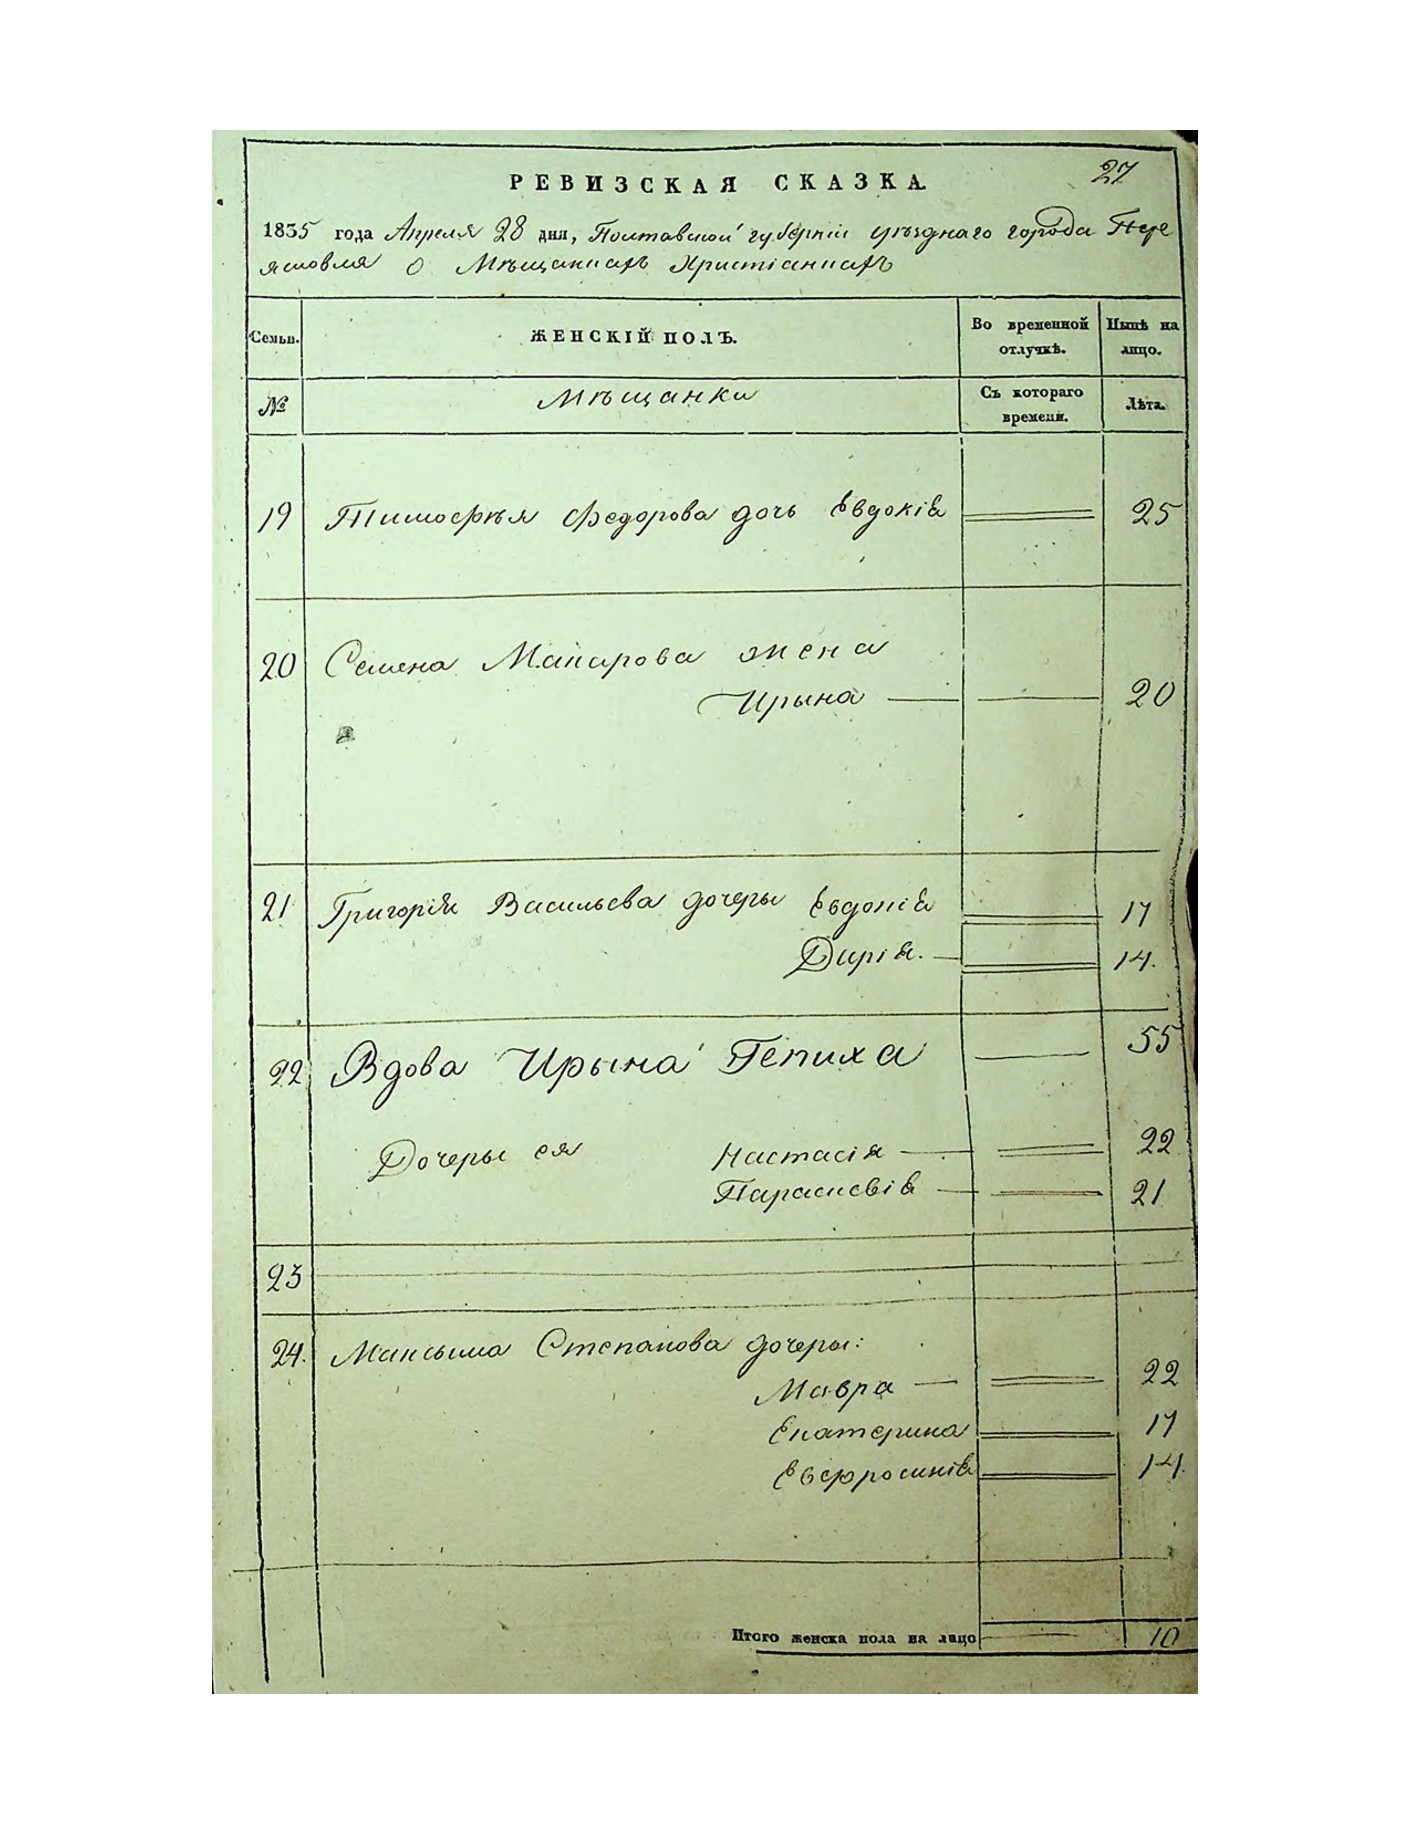 27
РЕВИЗСКАЯ СКАЗКА.
1835 года Апреля 28 дня, Полтавской губернии уѣзднаго города Пере
яславля о Мѣщанахъ Христіанахъ
Семьи. ЖЕНСКІЙ ПОЛЪ. Во временной отлучкѣ. Нынѣ на лицо.
№ Мѣщанки Съ котораго времени. Лѣта.
19 Тимофѣя Федорова дочь Евдокія 25
20 Семена Макарова жена
Ирына 20
21 Григорія Васильева дочеры Евдокія 17
Дарія. 14.
22 Вдова Ирына 55
Дочеры ея Настасія 22
Параскевія 21
23
24. Максыма Степанова дочеры:
Мавра 22
Екатерина 17
Евфросинія 14.
Итого женска пола на лицо 10